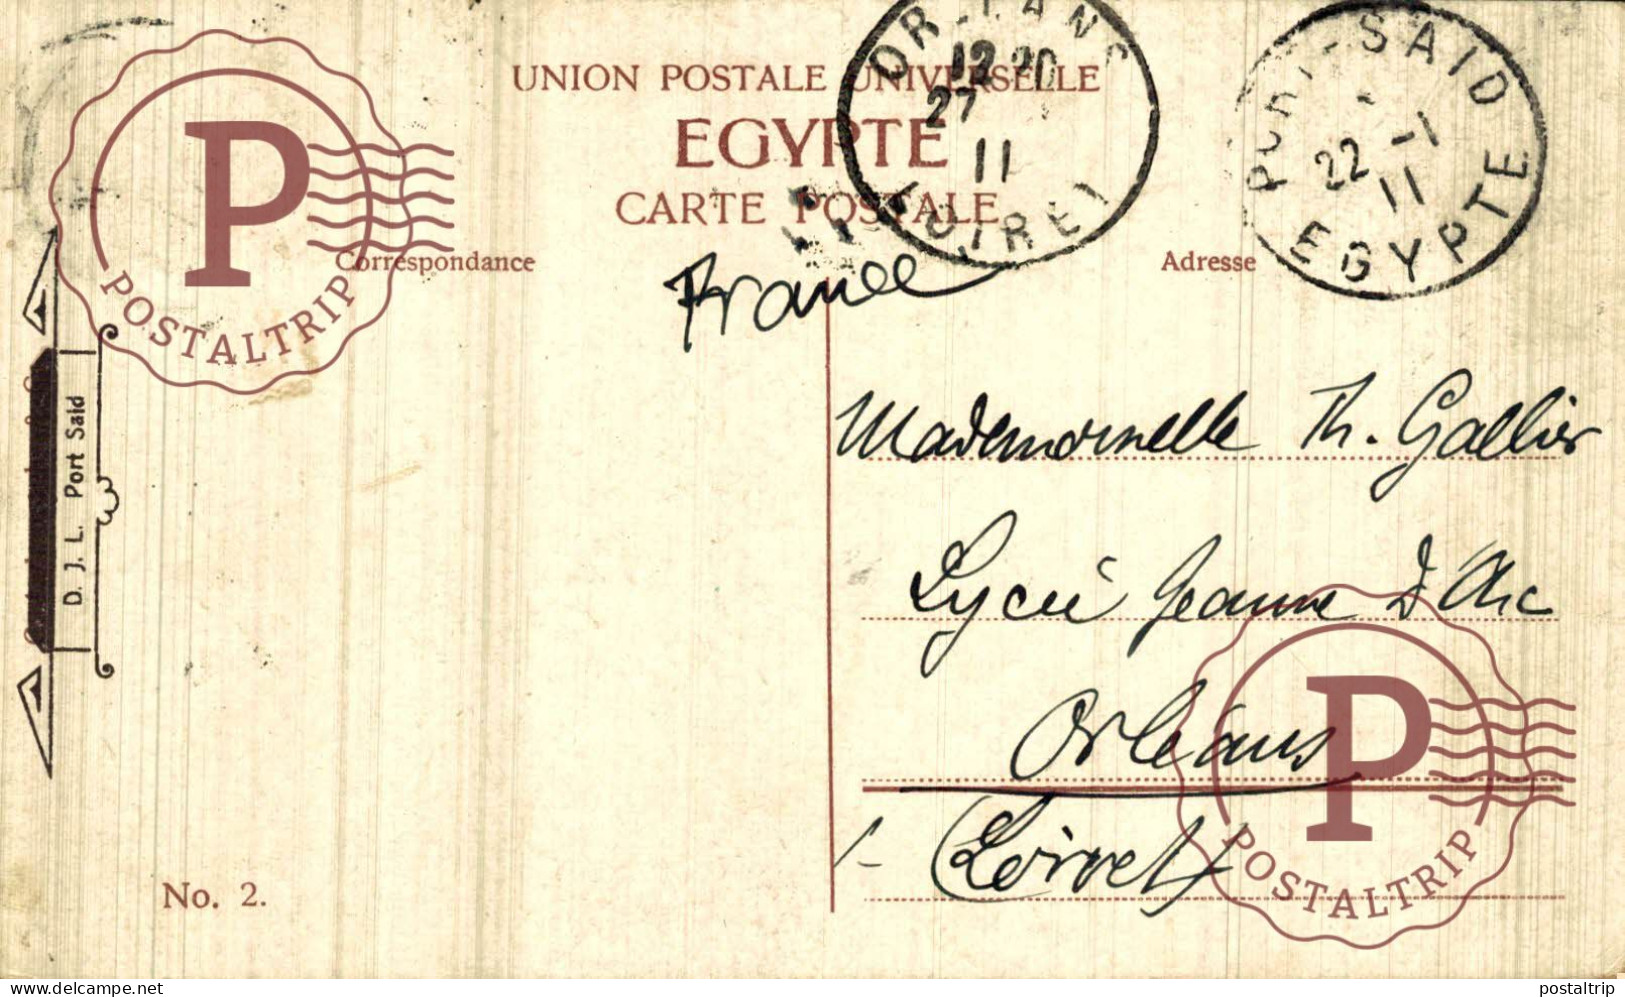 UNION POSTALE UNIVERSELLE
EGYPTE
CARTE POSTALE
Correspondance
Adresse
12 20
27
11
LOIRET
PORT-SAID
22 -1
11
EGYPTE
P
POSTALTRIP
France
D. J. L. Port Said
Mademoiselle Th. Gallier
Lycée Jeanne d'Arc
Orléans
(Loiret)
No. 2.
P
POSTALTRIP
delcampe.net
postaltrip